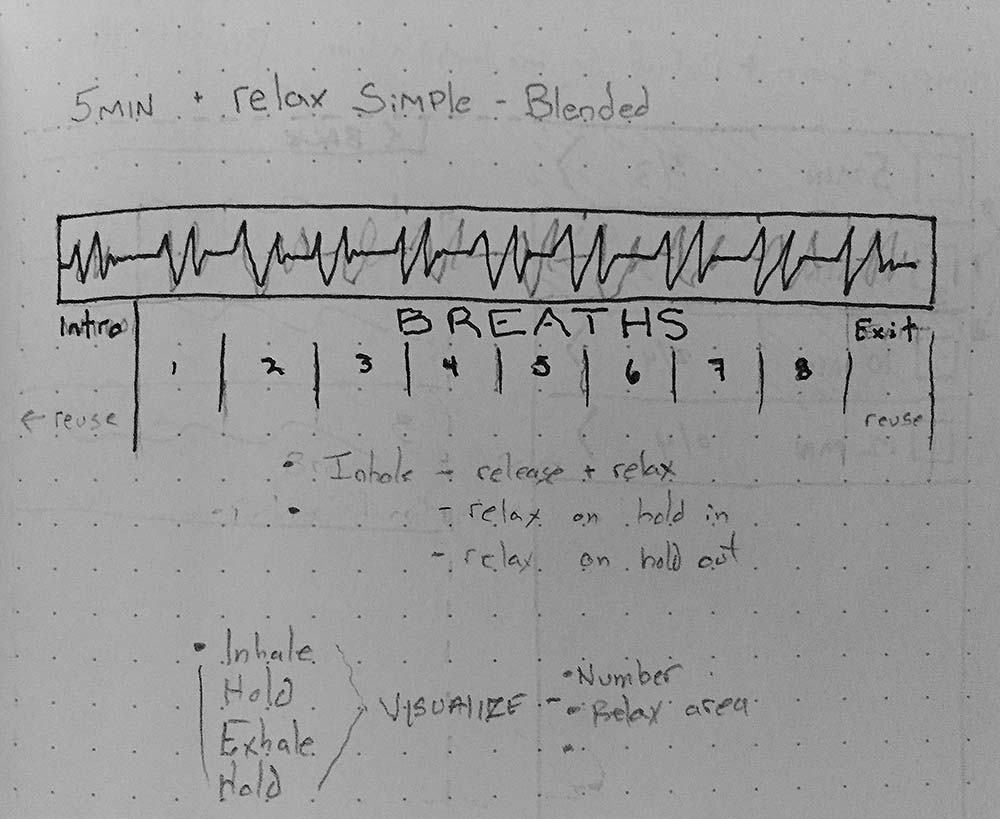 5MIN + relax SIMPLE - Blended
Intro BREATHS Exit
1 2 3 4 5 6 7 8
← reuse reuse
• Inhale - release + relax
• - relax on hold in
- relax on hold out
• Inhale
Hold
Exhale
Hold
VISUALIZE -
• Number
• Relax area
•